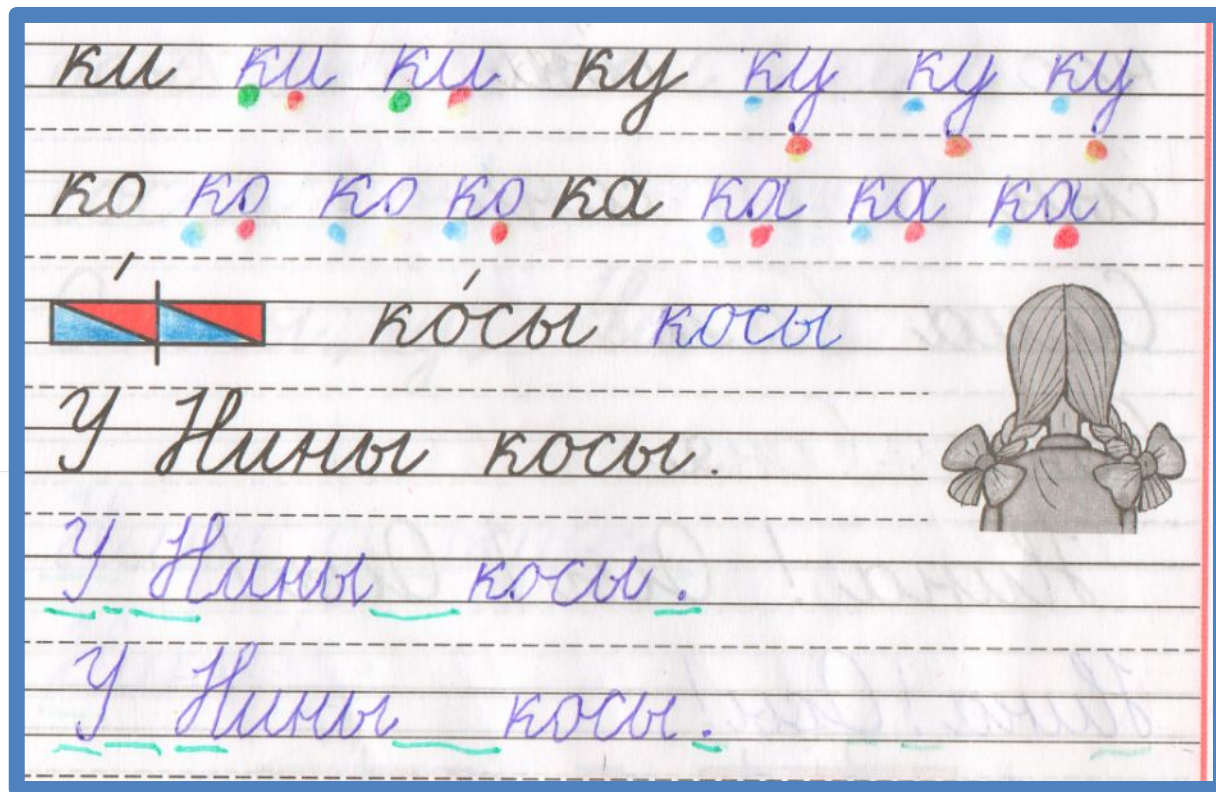 ки ки ки ку ку ку ку
ко ко ко ко ка ка ка ка
ко́сы косы
У Нины косы.
У Нины косы.
У Нины косы.